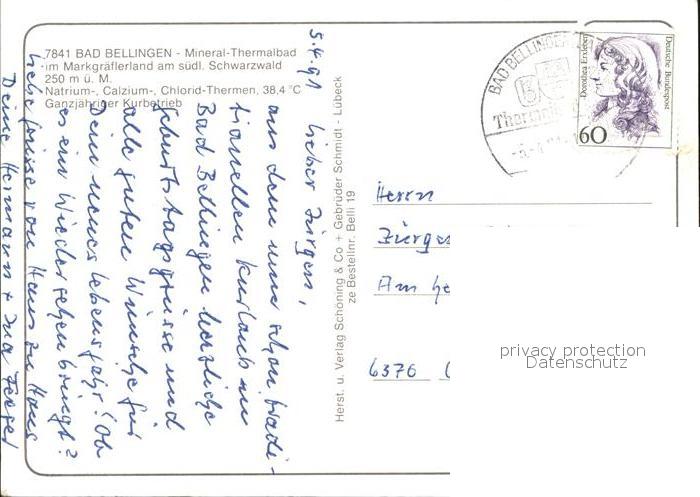 7841 BAD BELLINGEN - Mineral-Thermalbad
im Markgräflerland am südl. Schwarzwald
250 m ü. M.
Natrium-, Calzium-, Chlorid-Thermen, 38,4 °C
Ganzjähriger Kurbetrieb
5.4.91
Lieber Jürgen,
aus dem nun schon tradi-
tionellen Kurlaub in
Bad Bellingen herzliche
Geburtstagsgrüsse und
alle guten Wünsche für
Dein neues Lebensjahr! Ob
es ein Wiedersehen bringt?
Liebe Grüsse von Haus zu Haus
Deine Hermann +
Herst. u. Verlag Schöning & Co + Gebrüder Schmidt - Lübeck
ze Bestellnr. Belli 19
BAD BELLINGEN
Dorothea Erxleben
Deutsche Bundespost
60
Herrn
Jürge
Am
6376
privacy protection
Datenschutz